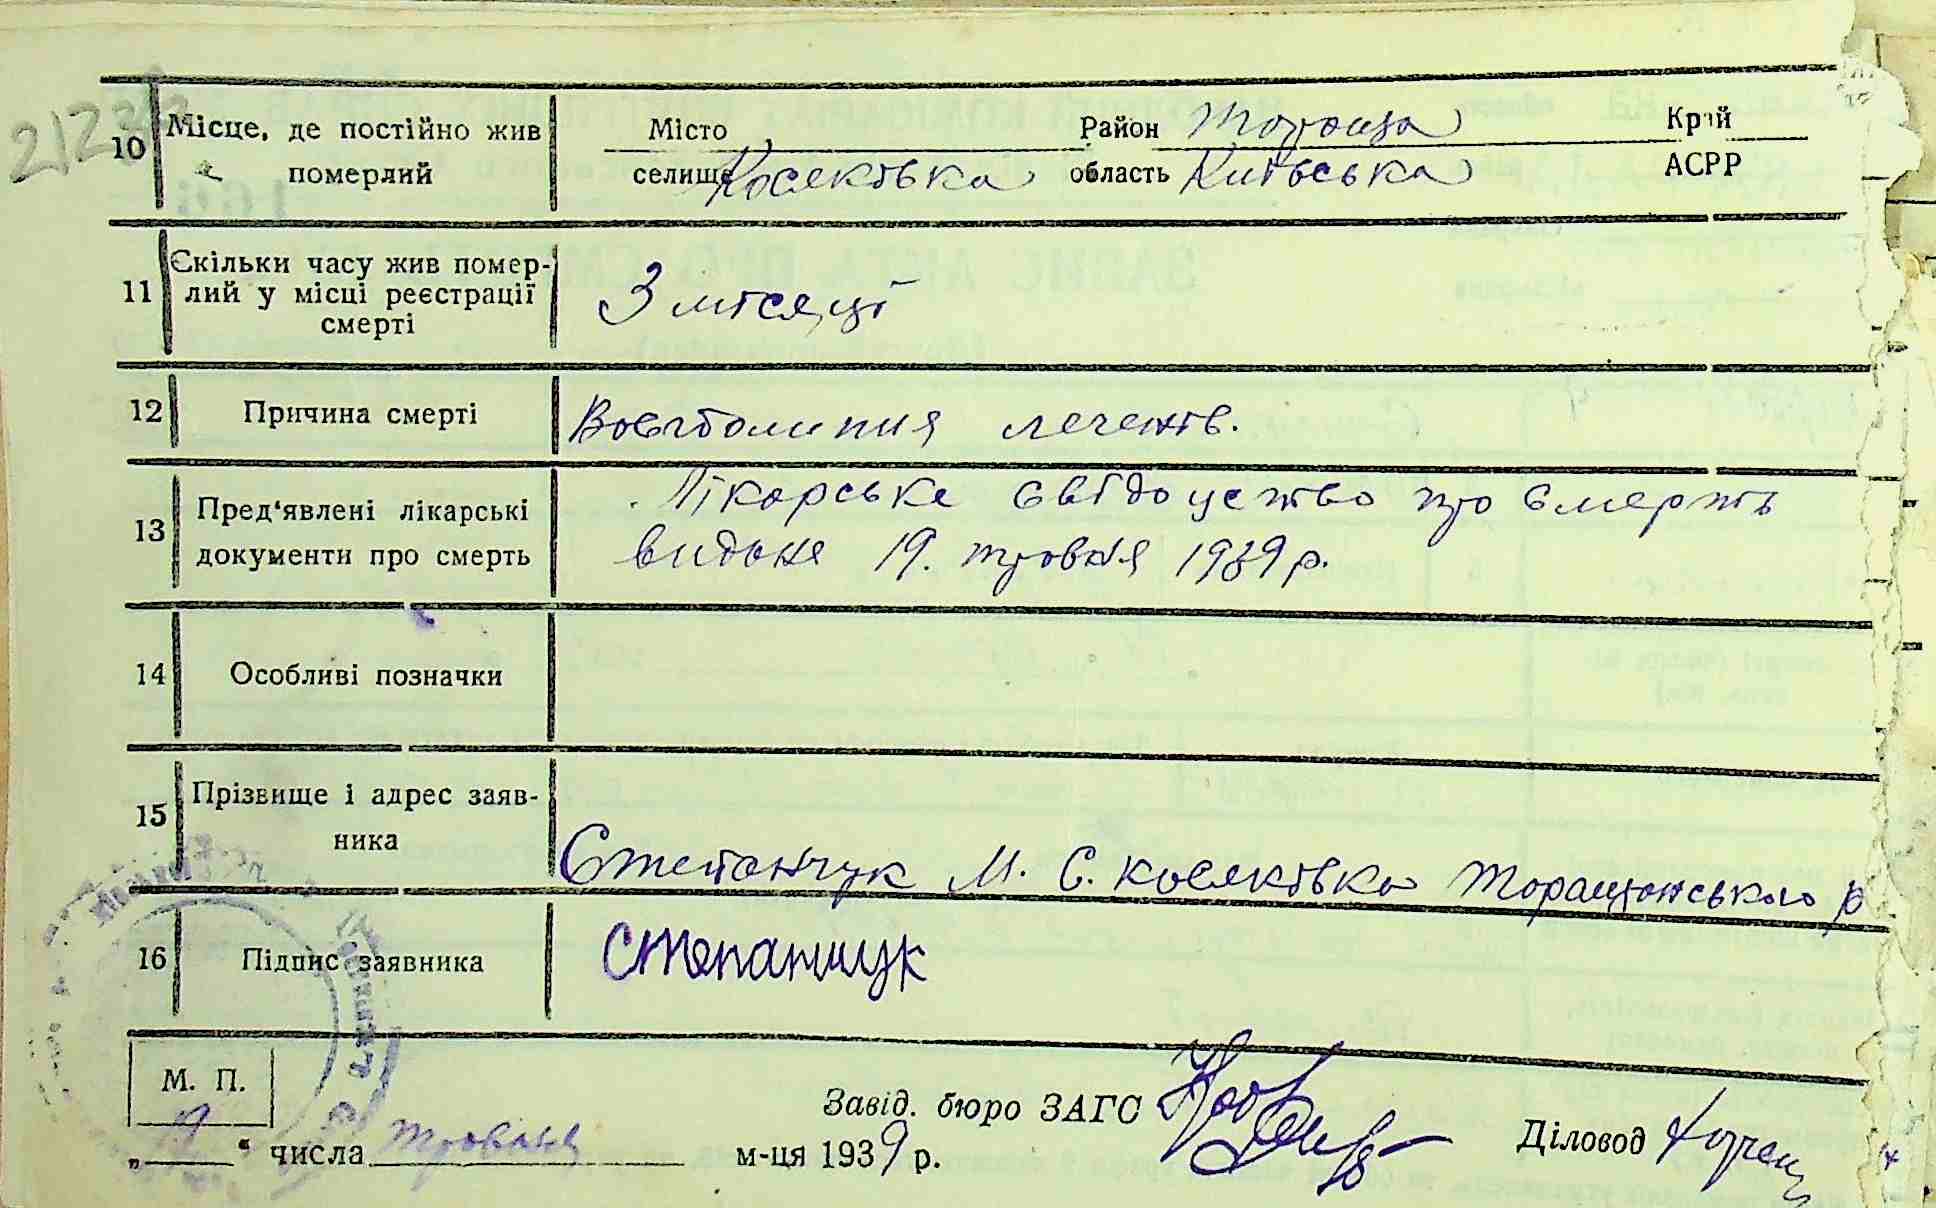 212
10 Місце, де постійно жив померлий
Місто Район Тараща Край
селище Косяківка область Київська АСРР
11 Скільки часу жив померлий у місці реєстрації смерті
3 місяці
12 Причина смерті
Воспалипия лечень.
13 Пред'явлені лікарські документи про смерть
Лікарське свідоцтво про смерть
видане 19. травня 1939 р.
14 Особливі позначки
15 Прізвище і адрес заявника
Степанчук М. С. Косяківка Таращанського р
16 Підпис заявника
Степанчук
М. П.
Завід. бюро ЗАГС
Діловод
„19" числа травня м-ця 1939 р.